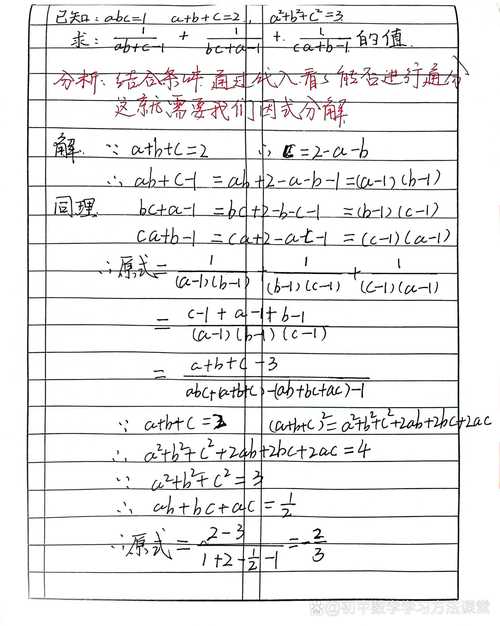 已知: abc=1 a+b+c=2, a²+b²+c²=3
求: 1/(ab+c-1) + 1/(bc+a-1) + 1/(ca+b-1) 的值.
分析: 结合条件 通过代入看s能否进行通分
这就需要我们因式分解
解. ∵ a+b+c=2 ∴ c=2-a-b
∴ ab+c-1 = ab+2-a-b-1=(a-1)(b-1)
同理. bc+a-1 = bc+2-b-c-1 = (b-1)(c-1)
ca+b-1 = ca+2-a-c-1 = (c-1)(a-1)
∴原式= 1/((a-1)(b-1)) + 1/((b-1)(c-1)) + 1/((c-1)(a-1))
= (c-1+a-1+b-1)/((a-1)(b-1)(c-1))
= (a+b+c-3)/(abc+(a+b+c)-(ab+bc+ac)-1)
∵ a+b+c=2 (a+b+c)²=a²+b²+c²+2ab+2bc+2ac
∴ a²+b²+c²+2ab+2bc+2ac=4
∵ a²+b²+c²=3
∴ ab+bc+ac=1/2
∴原式= (2-3)/(1+2-1/2-1) =-2/3
@初中数学学习方法课堂